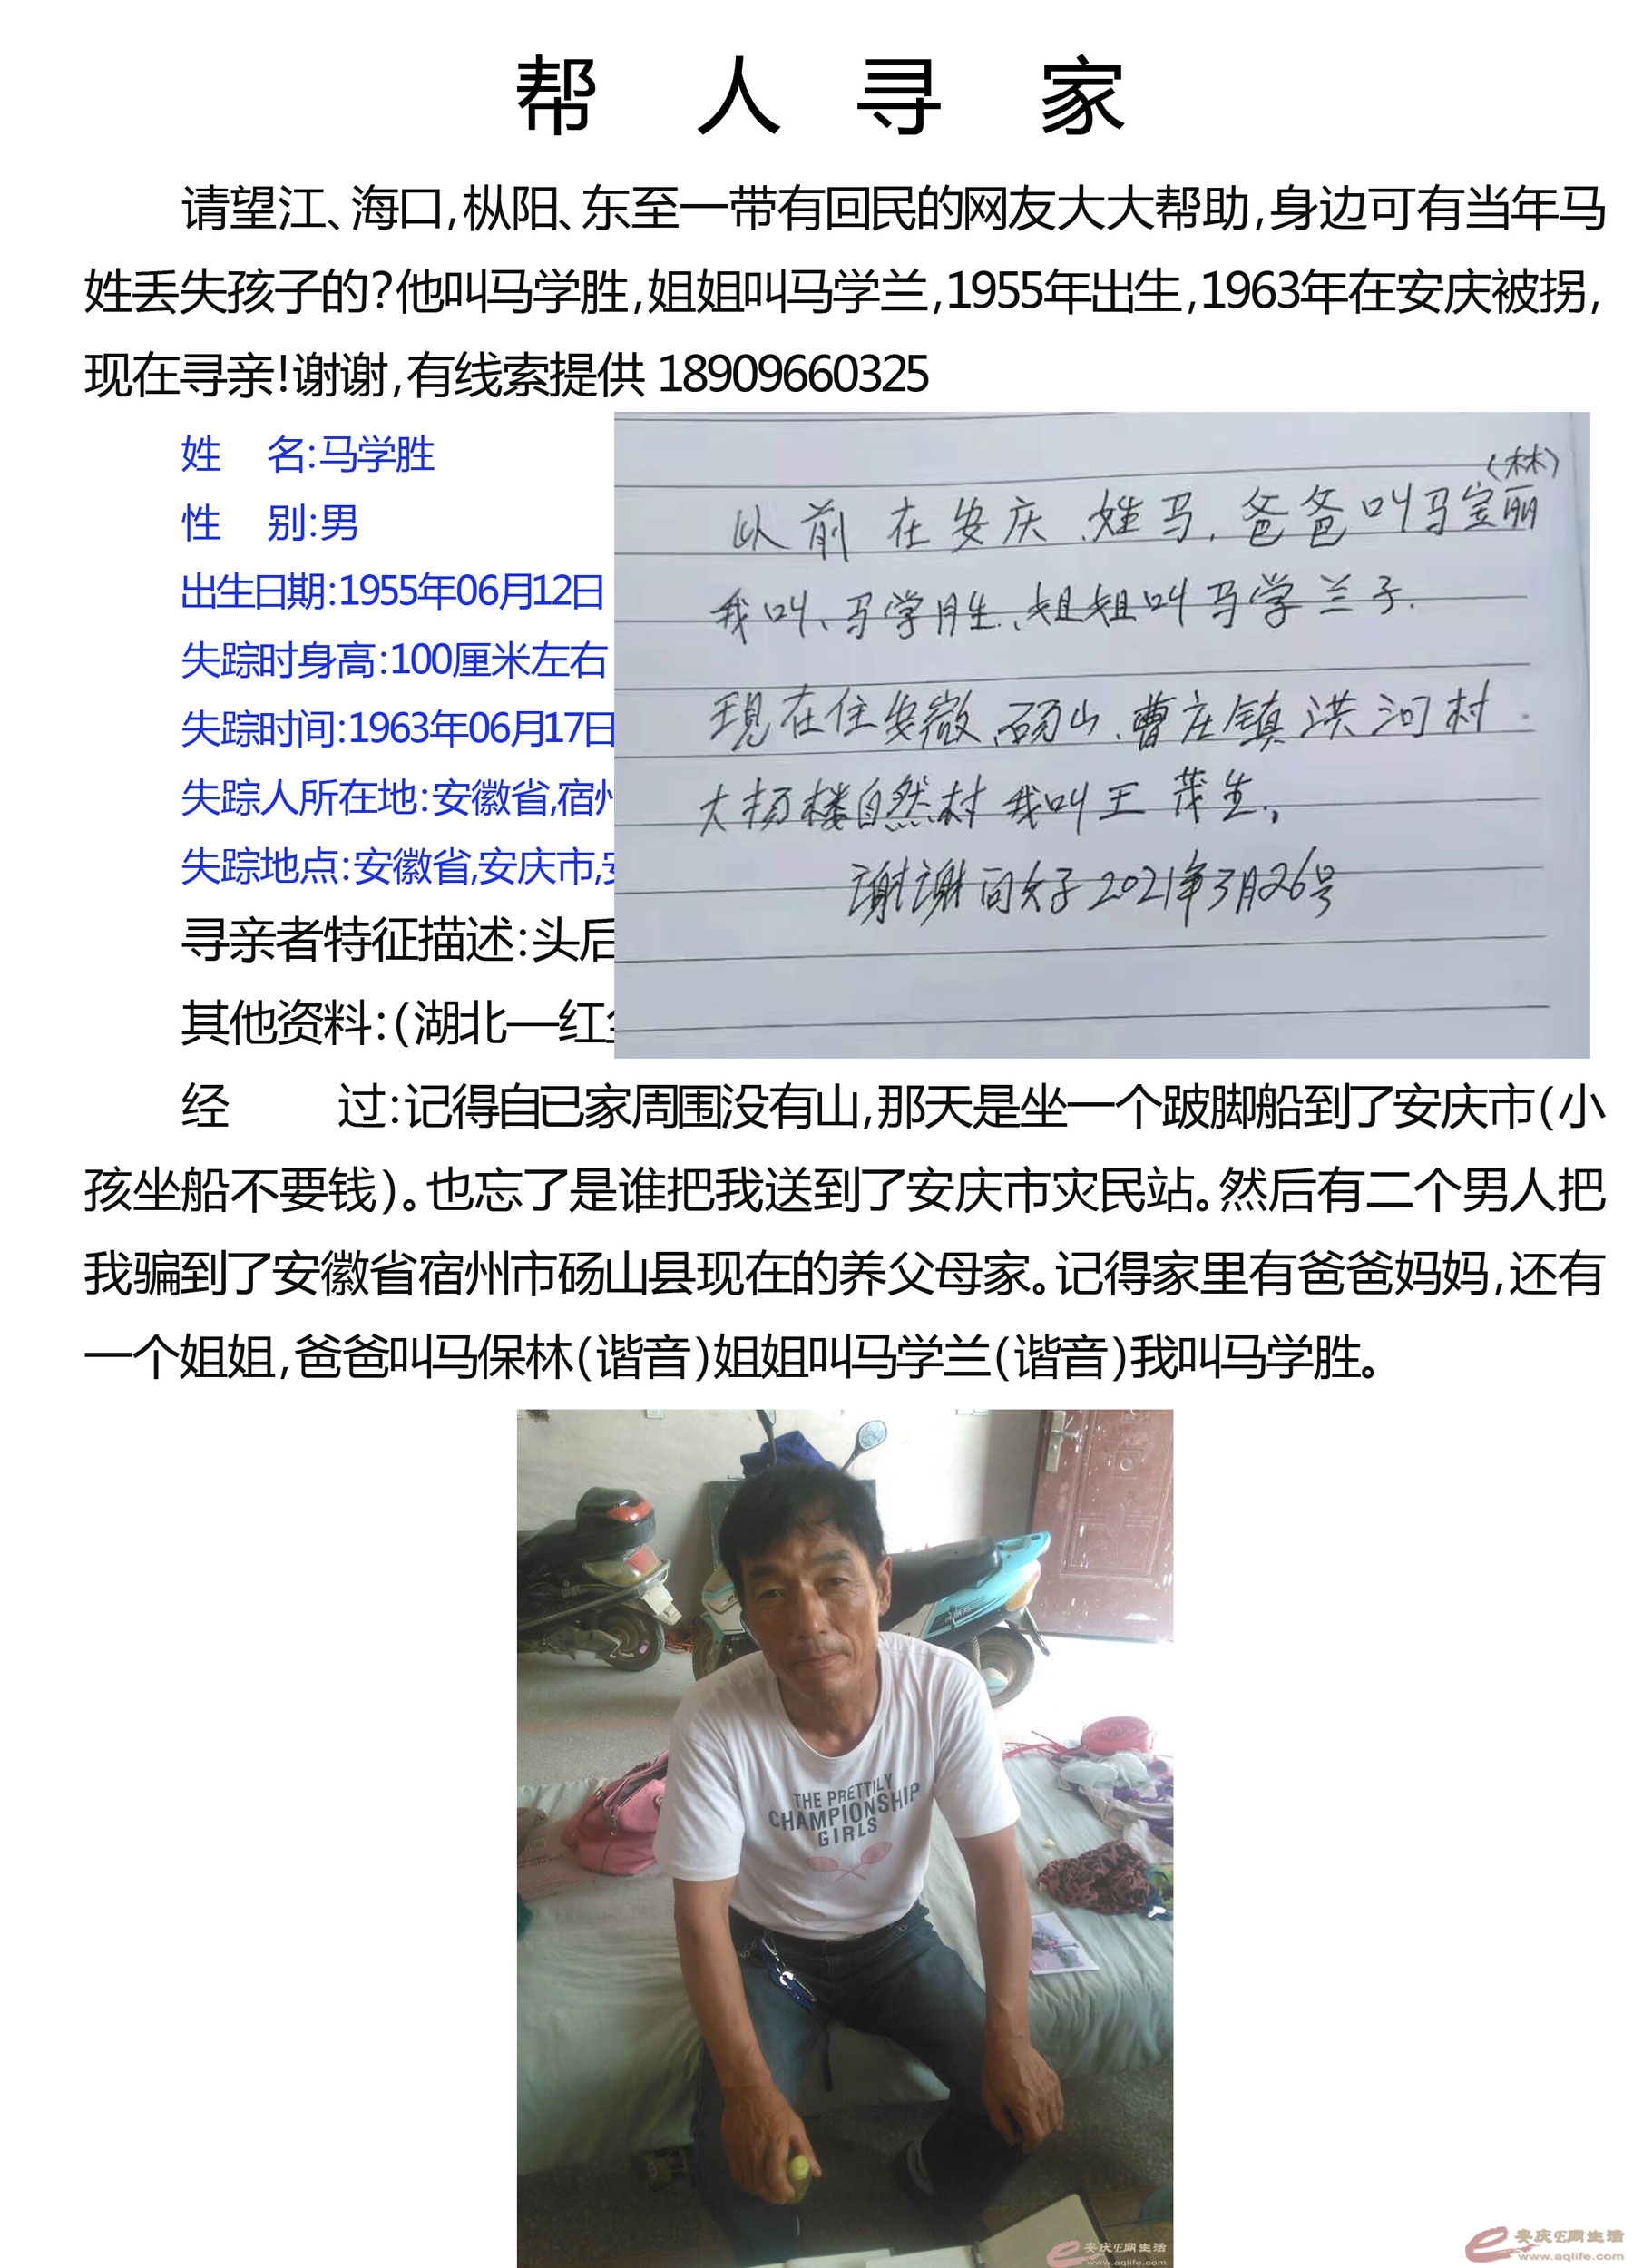 帮 人 寻 家
请望江、海口,枞阳、东至一带有回民的网友大大帮助,身边可有当年马
姓丢失孩子的?他叫马学胜,姐姐叫马学兰,1955年出生,1963年在安庆被拐,
现在寻亲!谢谢,有线索提供 18909660325
姓 名:马学胜
性 别:男
出生日期:1955年06月12日
失踪时身高:100厘米左右
失踪时间:1963年06月17日
失踪人所在地:安徽省,宿
失踪地点:安徽省,安庆市,
寻亲者特征描述:头后
其他资料:(湖北—红
(林)
以前在安庆.姓马.爸爸叫马宝丽
我叫、马学胜.姐姐叫马学兰子.
现在住安微、砀山、曹庄镇洪河村.
大杨楼自然村 我叫王茂生,
谢谢 2021年3月26号
经 过:记得自已家周围没有山,那天是坐一个跛脚船到了安庆市(小
孩坐船不要钱)。也忘了是谁把我送到了安庆市灾民站。然后有二个男人把
我骗到了安徽省宿州市砀山县现在的养父母家。记得家里有爸爸妈妈,还有
一个姐姐,爸爸叫马保林(谐音)姐姐叫马学兰(谐音)我叫马学胜。
THE PRETTILY
CHAMPIONSHIP
GIRLS
安庆E网生活
www.aqlife.com
安庆E网生活
www.aqlife.com